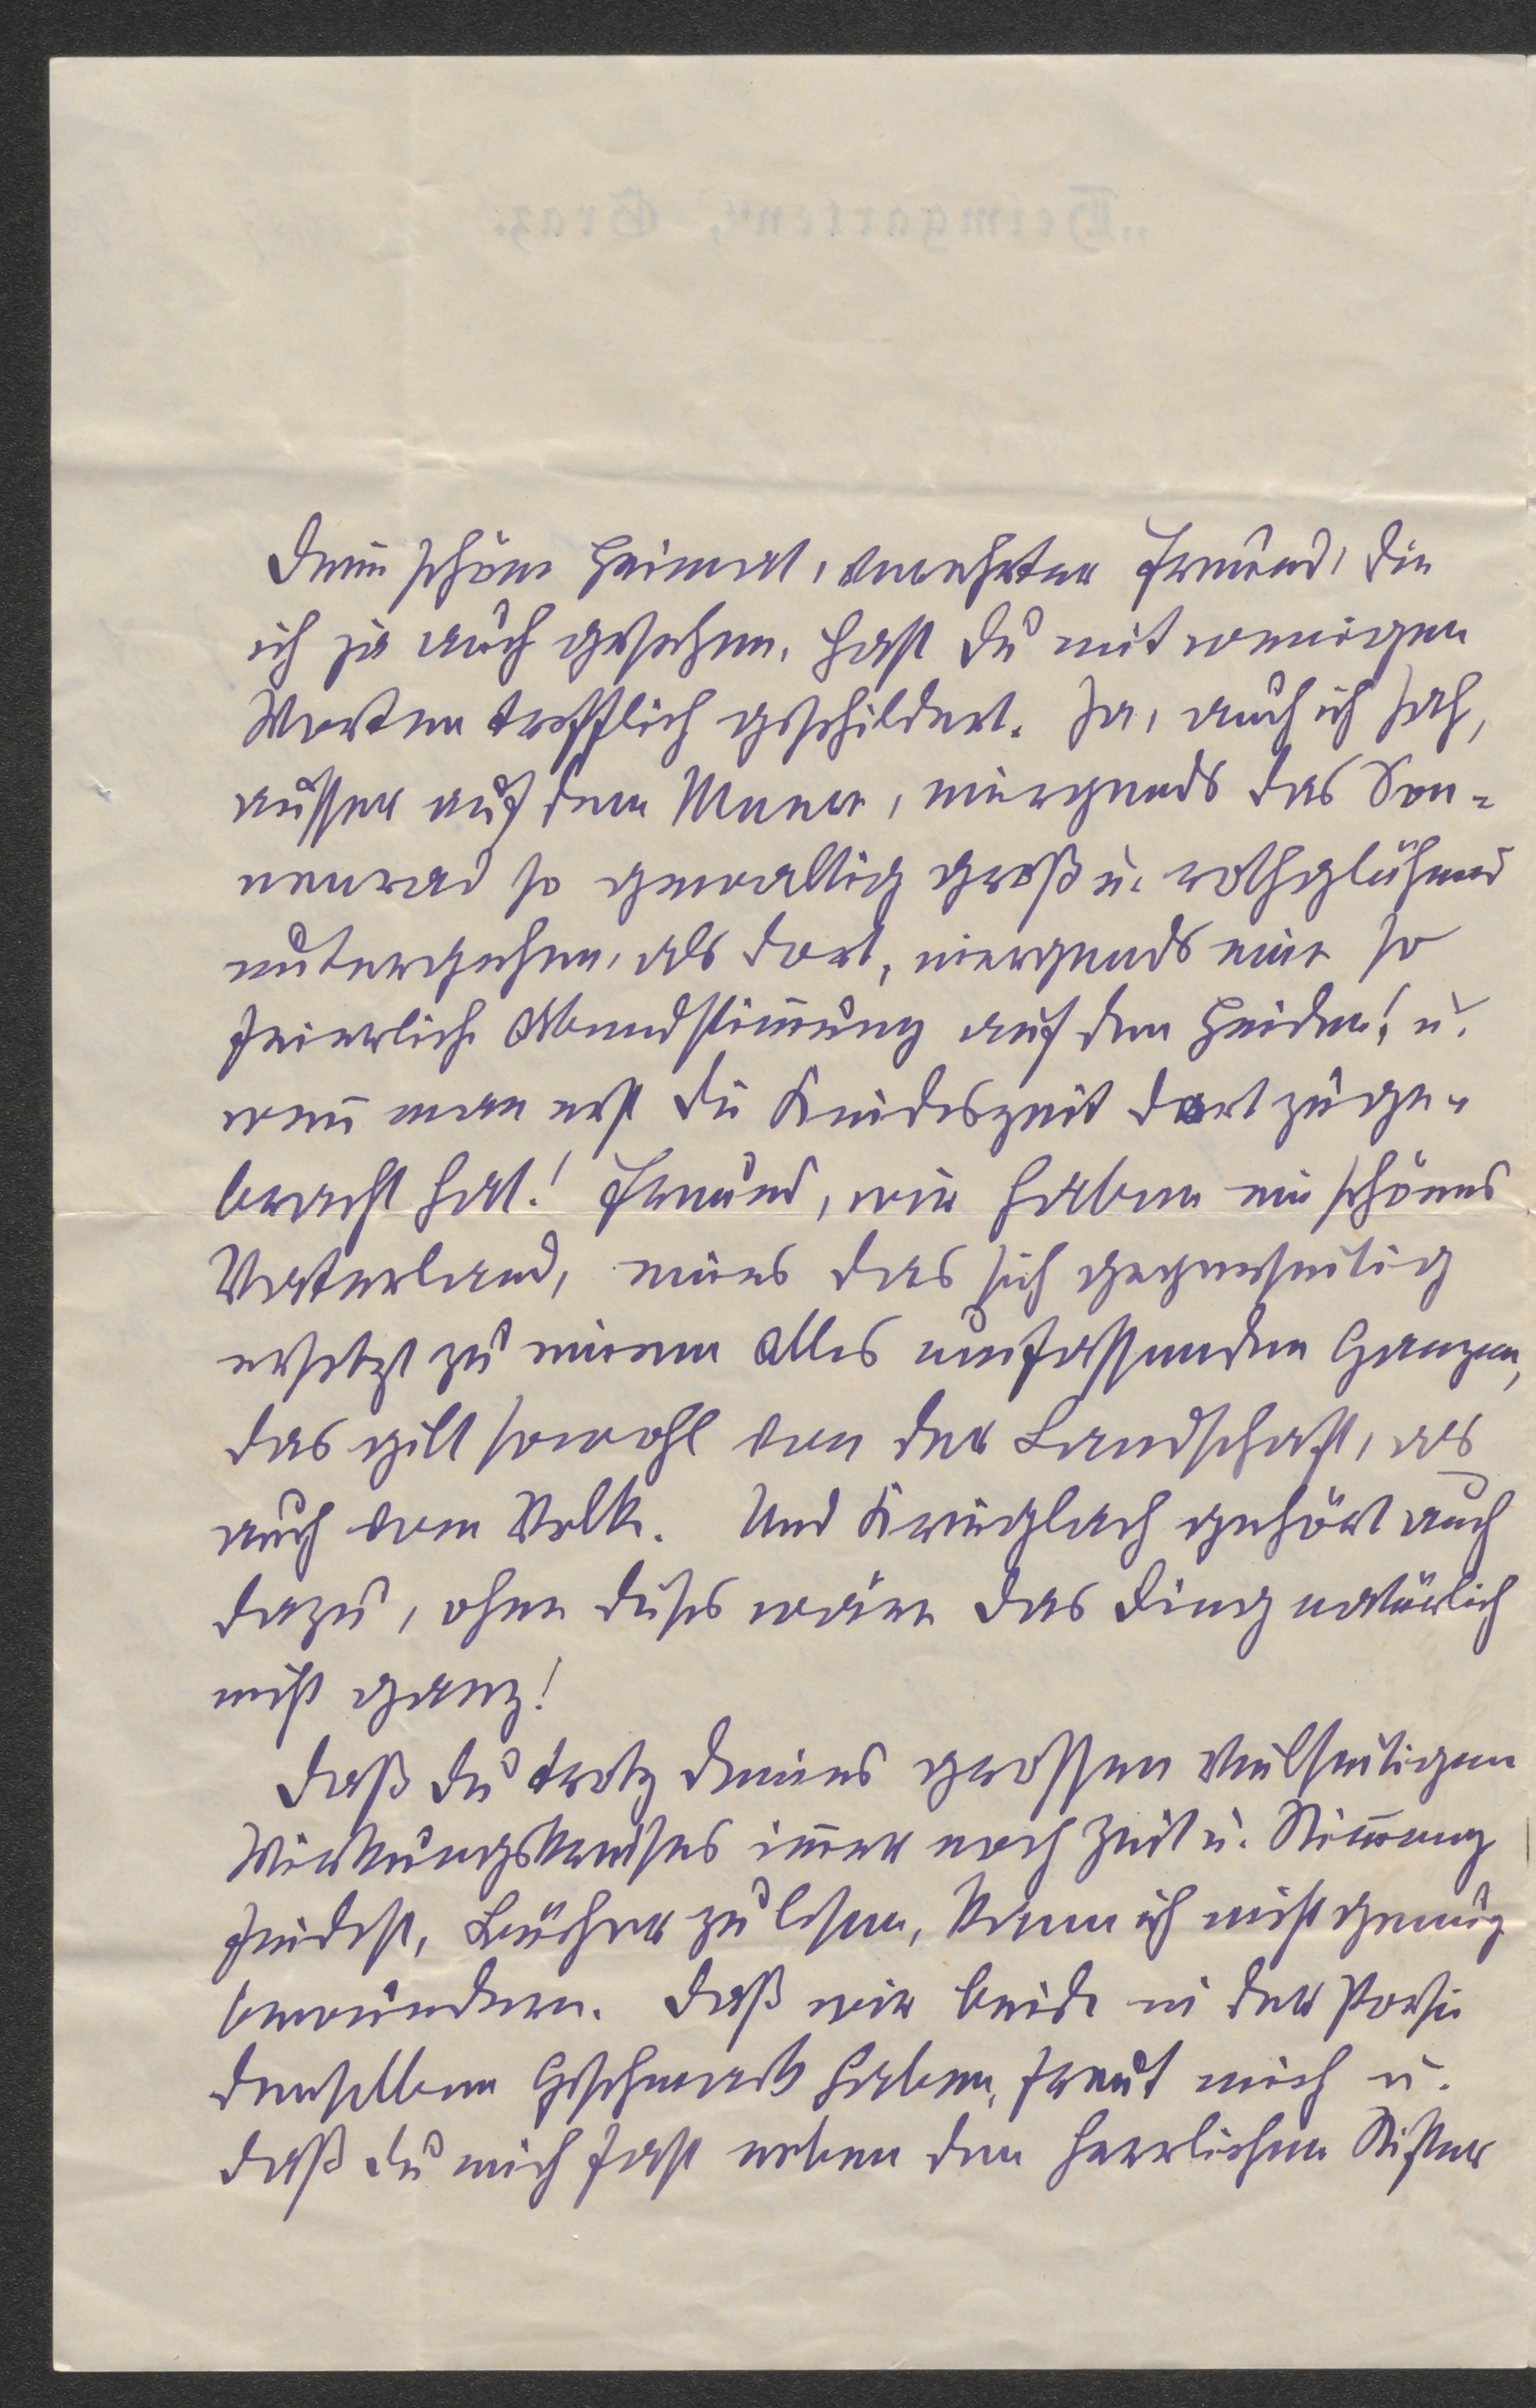 „Heimgarten“, Graz.
Deine schöne Heimat, verehrter Freund, die
ich ja auch gesehen, hast Du mit wenigen
Worten trefflich geschildert. Ja, auch ich sah,
ausser auf dem Meere, niergends das Son-
nenrad so gewaltig groß u. rothglühend
untergehen, als dort, niergends eine so
feierliche Abendstimmung auf den Heiden! u.
wenn man erst die Kindeszeit dort zuge-
bracht hat! Freund, wir haben ein schönes
Vaterland, eines das sich gegenseitig
ersetzt zu einem Alles umfassenden Ganzen,
das gilt sowohl von der Landschaft, als
auch vom Volk. Und Krieglach gehört auch
dazu, ohne dieses wäre das Ding natürlich
nicht ganz!
Daß Du trotz Deines grossen vielseitigen
Wirkungskreises immer noch Zeit u. Stimmung
findest, Bücher zu lesen, kann ich nicht genug
bewundern. Daß wir beide in der Poesie
denselben Geschmack haben, freut mich u.
daß Du mich fast neben den herrlichen Stifter